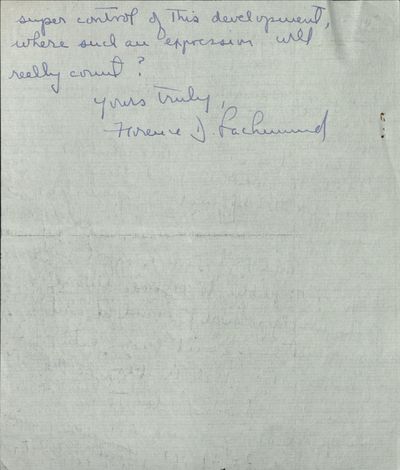 super control of this development,
where such an expression will
really count?
Yours truly,
Florence D. Lachmund